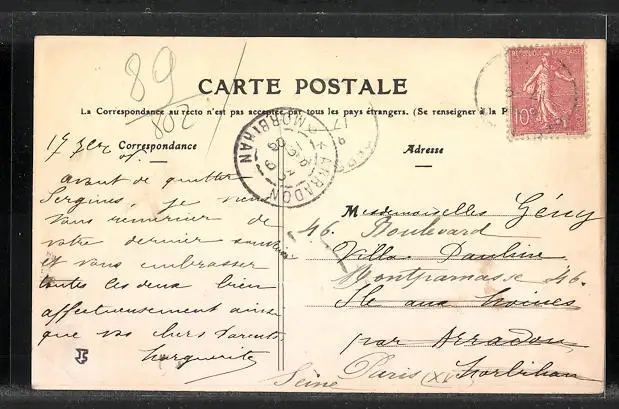 89
802
CARTE POSTALE
La Correspondance au recto n'est pas acceptée par tous les pays étrangers. (Se renseigner à la P
Correspondance
Adresse
REPUBLIQUE FRANÇAISE
10c
ARRADON
MORBIHAN
avant de quitter
Sergines, je veux
vous remercier de
votre dernier
et vous embrasser
toutes les deux bien
affectueusement ainsi
que vos chers parents.
Marguerite
Mesdemoiselles Gény
46. Boulevard
Villa Pauline
Montparnasse 46.
Ile aux Moines
par Arradon
Paris Morbihan
Seine